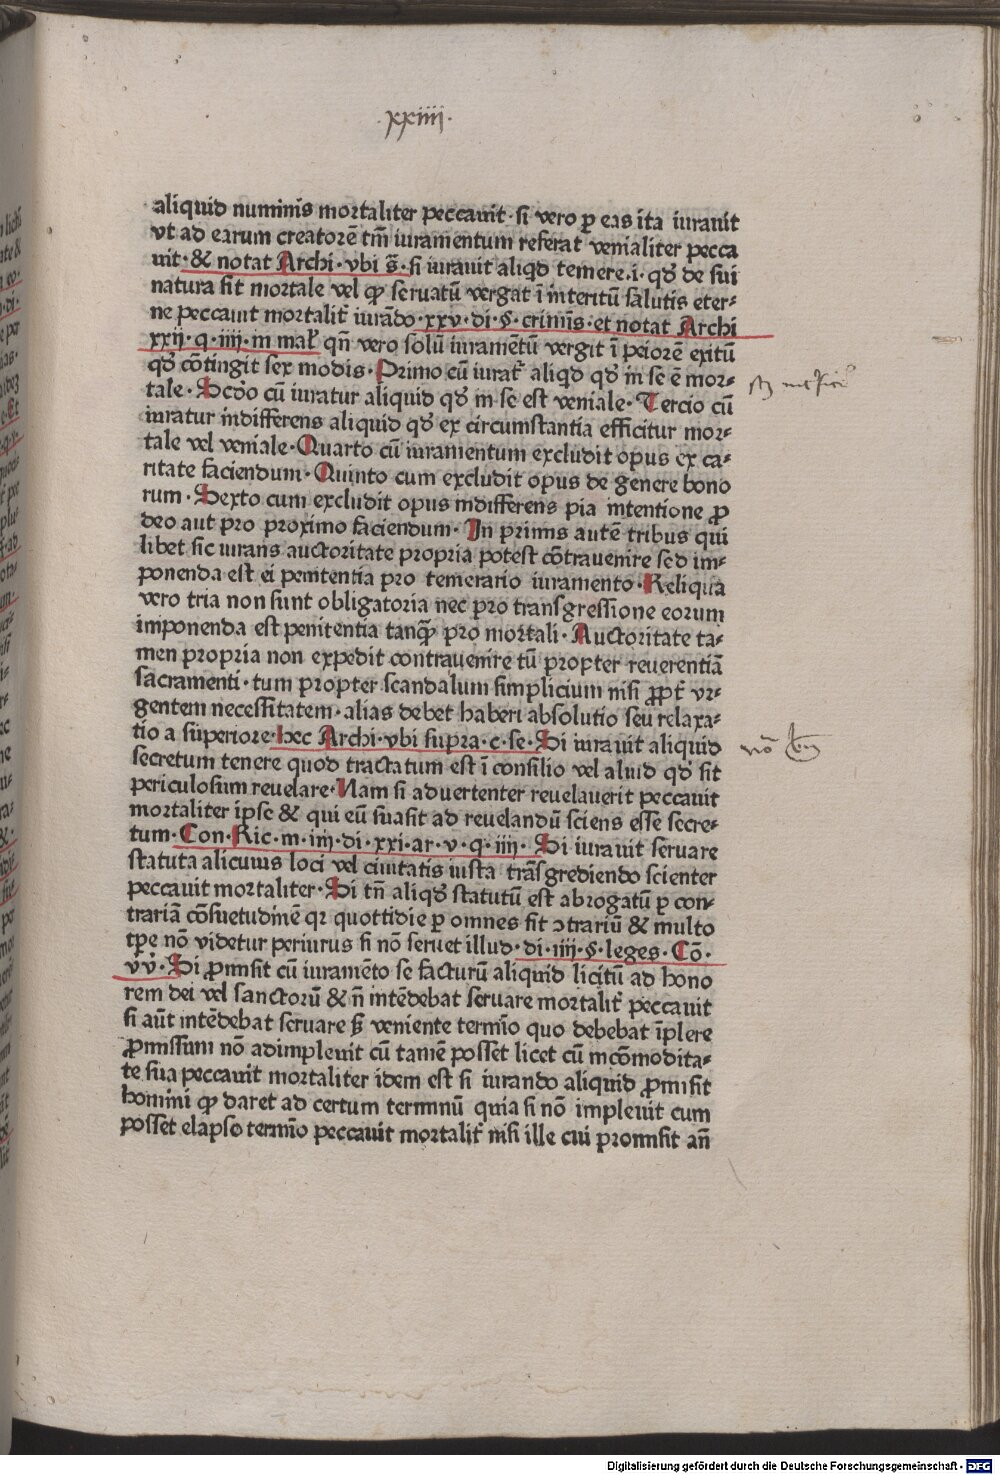 .xxiiij.
aliquid numinis mortaliter peccauit · si vero ꝑ eas ita iurauit
vt ad earum creatorē tm̄ iuramentum referat venialiter pecca
uit · & notat Archi · vbi s̄ · si iurauit aliqd temere .i. qd' de sui
natura sit mortale vel ꝙ seruatū vergat ī interitū salutis eter⸗
ne peccauit mortalit' iurādo · xxv · di · §. crimīs · et notat Archi
xxij · q · iiij · in mal' qn̄ vero solū iuramētū vergit ī peiorē exitū
qd' cōtingit sex modis · Primo cū iurat' aliqd qd' in se ē mor⸗
tale · Scd'o cū iuratur aliquid qd' in se est veniale · Tercio cū
iuratur indifferens aliquid qd' ex circumstantia efficitur mor⸗
tale vel veniale · Quarto cū iuramentum excludit opus ex ca⸗
ritate faciendum · Quinto cum excludit opus de genere bono
rum · Sexto cum excludit opus indifferens pia intentione ꝓ
deo aut pro proximo faciendum · In primis autē tribus qui
libet sic iurans auctoritate propria potest cōtrauenire sed im⸗
ponenda est ei penitentia pro temerario iuramento · Reliqua
vero tria non sunt obligatoria nec pro transgressione eorum
imponenda est penitentia tanqȝ pro mortali · Auctoritate ta⸗
men propria non expedit contrauenire tū propter reuerentiā
sacramenti · tum propter scandalum simplicium nisi ꝓpt' vr⸗
gentem necessitatem · alias debet haberi absolutio seu relaxa⸗
tio a superiore · hec Archi · vbi supra · c · se · Si iurauit aliquid
secretum tenere quod tractatum est ī consilio vel aliud qd' sit
periculosum reuelare · Nam si aduertenter reuelauerit peccauit
mortaliter ipse & qui eū suasit ad reuelandū sciens esse secre⸗
tum · Con · Ric · in · iiij · di · xxi · ar · v · q · iiij · Si iurauit seruare
statuta alicuius loci vel ciuitatis iusta trāsgrediendo scienter
peccauit mortaliter · Si tn̄ aliqd' statutū est abrogatū ꝑ con⸗
trariā cōsuetudinē qꝛ quottidie ꝑ omnes fit ꝯtrariū & multo
tpe nō videtur periurus si nō seruet illud · di · iiij · §. leges · Cō ·
vv̄ · Si ꝓmisit cū iuramēto se facturū aliquid licitū ad hono
rem dei vel sanctorū & n̄ intēdebat seruare mortalit' peccauit
si aūt intēdebat seruare sꝫ veniente termīo quo debebat īplere
ꝓmissum nō adimpleuit cū tamē posset licet cū incōmodita⸗
te sua peccauit mortaliter idem est si iurando aliquid ꝓmisit
homini ꝙ daret ad certum terminū quia si nō impleuit cum
posset elapso termīo peccauit mortalit' nisi ille cui promisit an̄
Digitalisierung gefördert durch die Deutsche Forschungsgemeinschaft · DFG